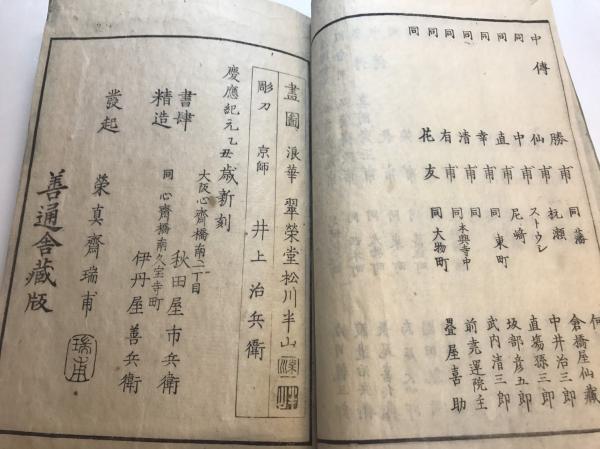 中傳 勝甫 同藩
同 仙甫 杭瀬 倉橋屋仙藏
同 中甫 ストウレ 中井治三郎
同 直甫 尼崎 直塲孫三郎
同 幸甫 同東町 坂部彦五郎
同 清甫 同 武内清三郎
同 有甫 同本興寺中 前堯運院主
同 花友 同大物町 疊屋喜助
畫圖 浪華 翠榮堂松川半山
彫刀 京師 井上治兵衛
慶應紀元乙丑歳新刻
大阪心齋橋南二丁目
書肆 秋田屋市兵衛
同心齋橋南久宝寺町
精造 伊丹屋善兵衛
發起 榮真齋瑞甫
瑞甫
善通舎藏版